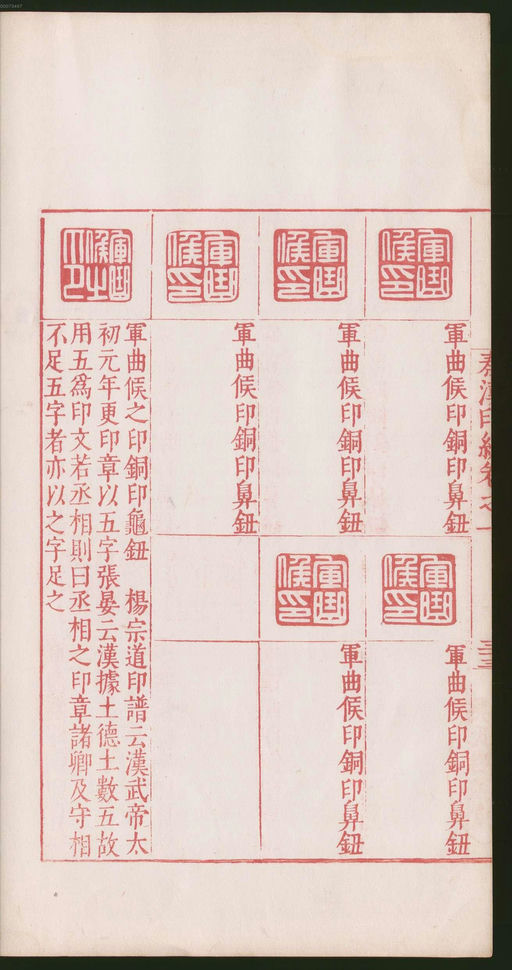 秦漢印統卷之一
三三
軍曲候印
軍曲候印銅印鼻鈕
軍曲候印
軍曲候印銅印鼻鈕
軍曲候印
軍曲候印銅印鼻鈕
軍曲候印
軍曲候印銅印鼻鈕
軍曲候印
軍曲候印銅印鼻鈕
軍曲候之印
軍曲候之印銅印龜鈕　楊宗道印譜云漢武帝太
初元年更印章以五字張晏云漢據土德土數五故
用五爲印文若丞相則曰丞相之印章諸卿及守相
不足五字者亦以之字足之
00073447